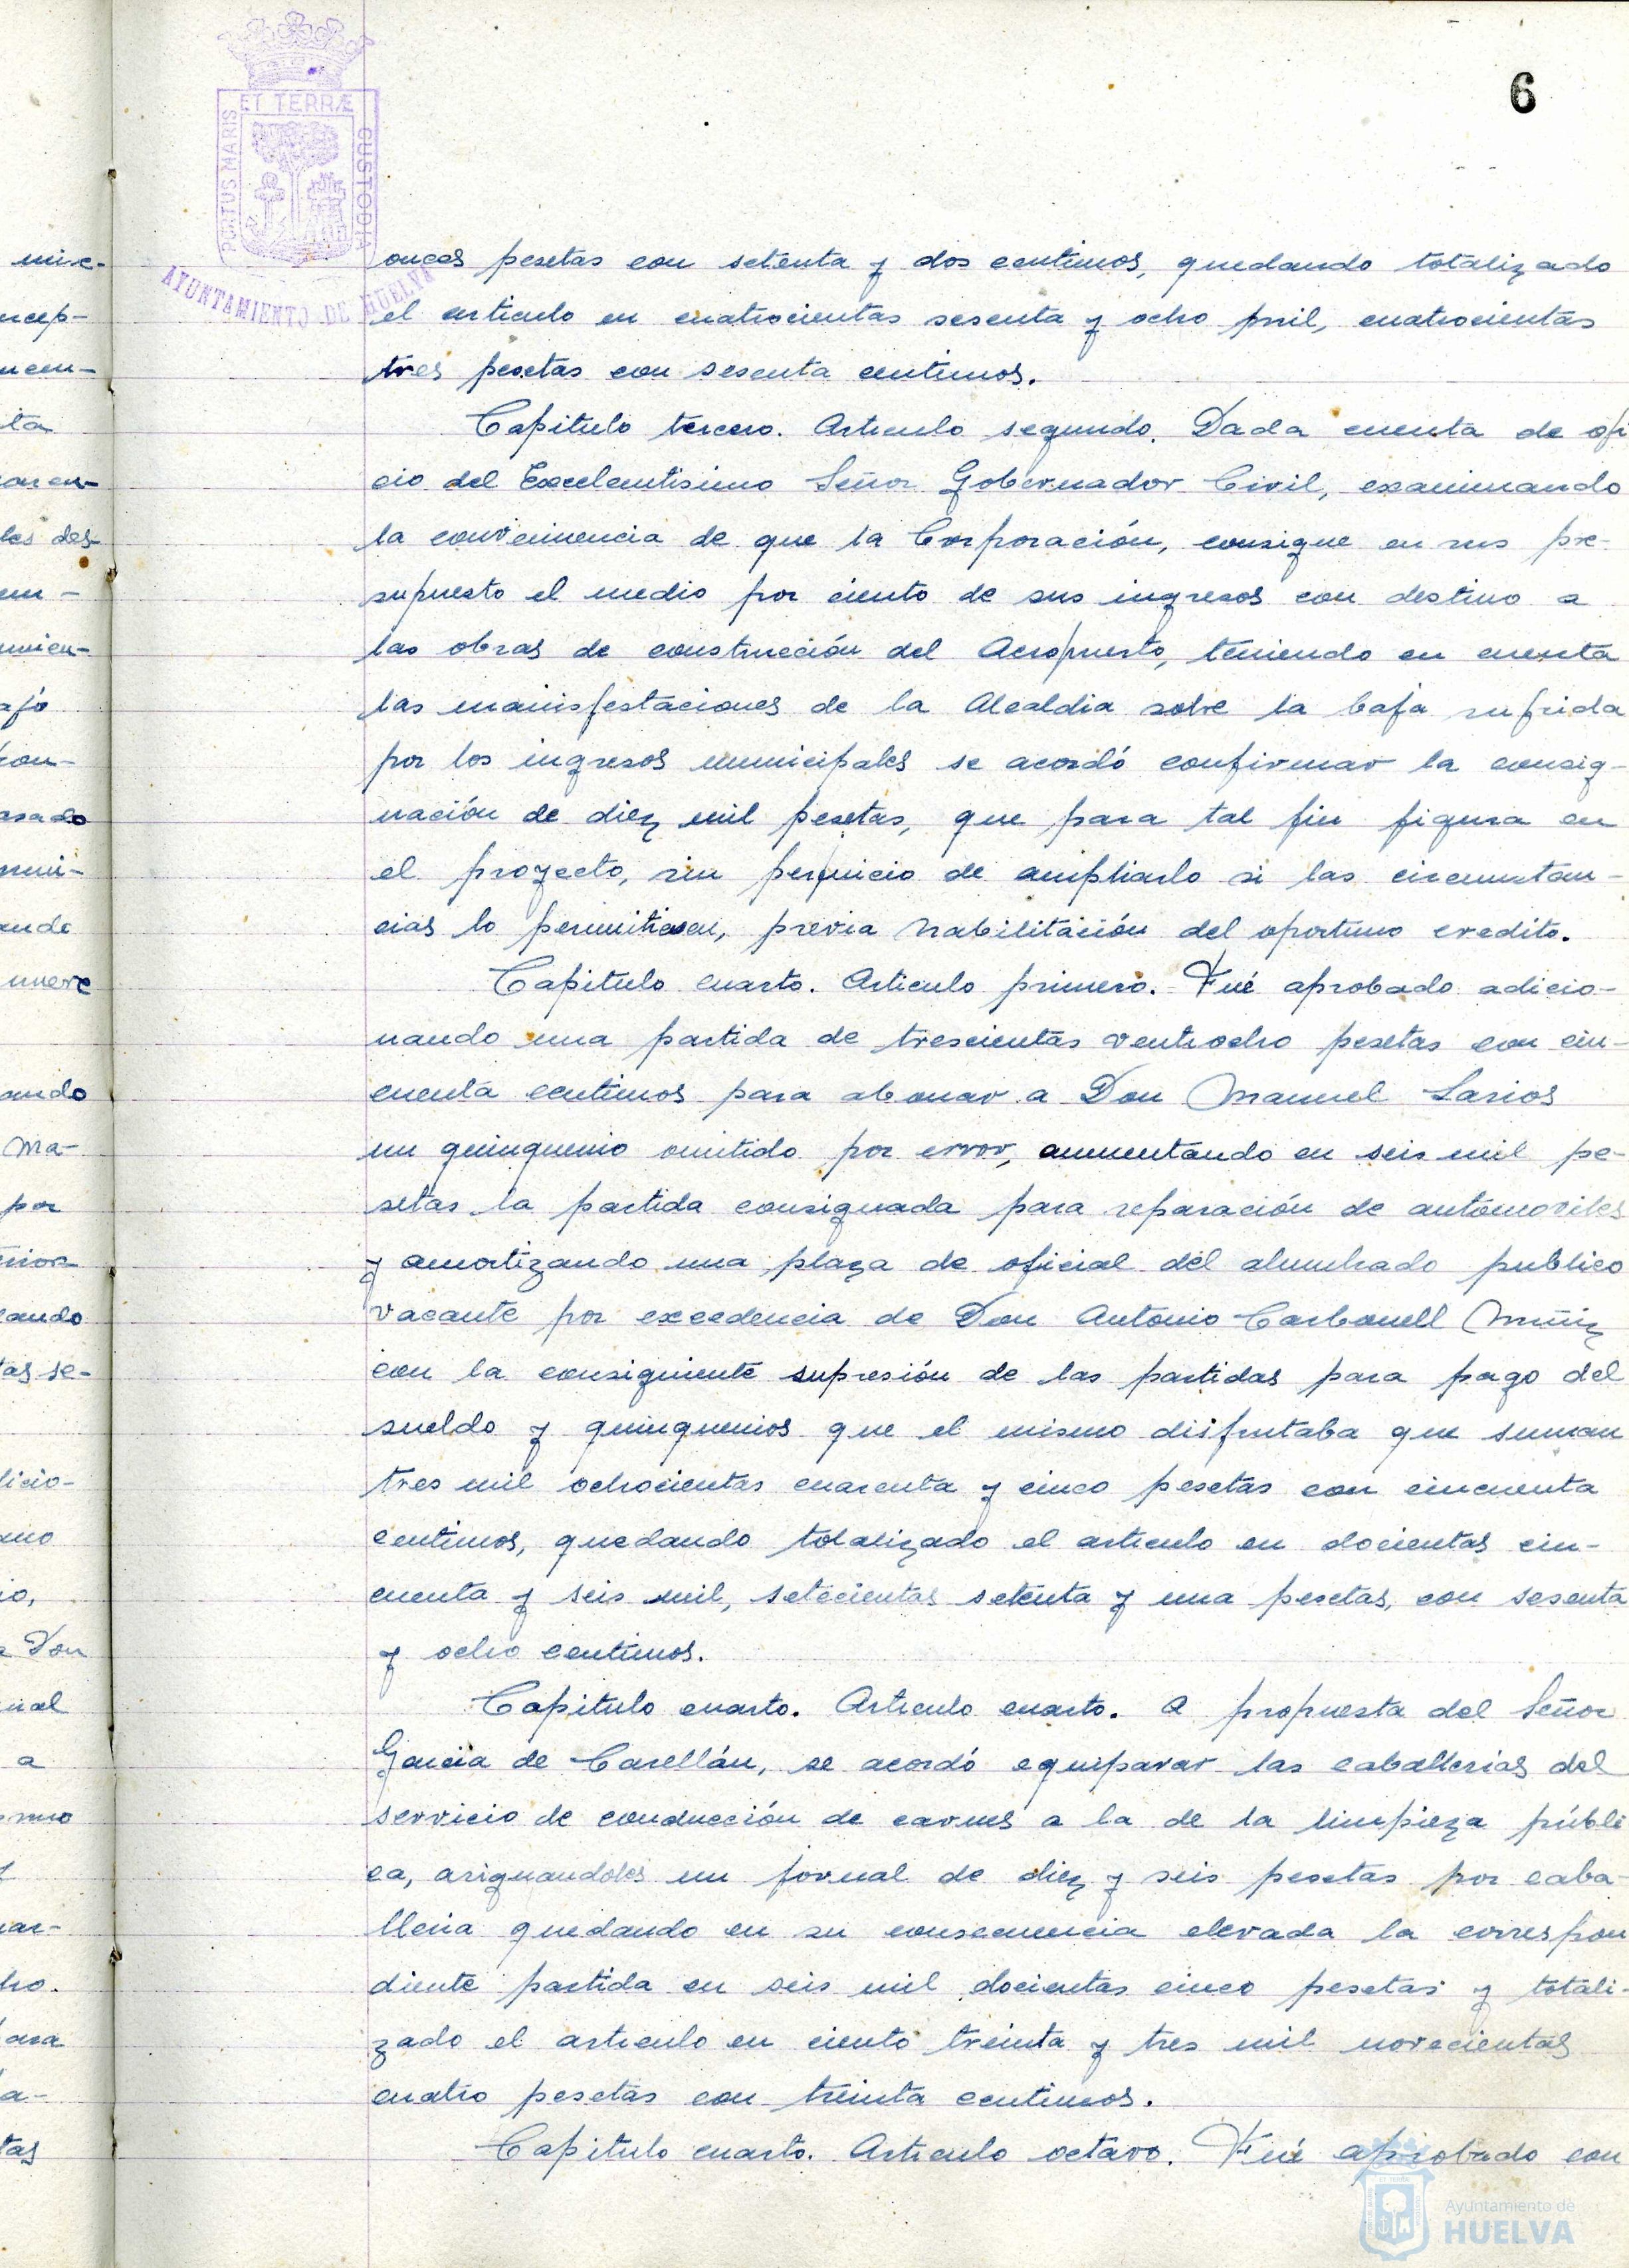 6
ET TERRÆ
PORTUS MARIS
CUSTODIA
AYUNTAMIENTO DE HUELVA
onces pesetas con setenta y dos centimos, quedando totalizado
el articulo en cuatrocientas sesenta y ocho mil, cuatrocientas
tres pesetas con sesenta centimos.
Capitulo tercero. Articulo segundo. Dada cuenta de ofi
cio del Excelentisimo Señor Gobernador Civil, examinando
la de que la Corporación, consigne en sus pre-
supuesto el medio por ciento de sus ingresos con destino a
las obras de construcción del Aeropuerto, teniendo en cuenta
las manisfestaciones de la Alcaldia sobre la baja sufrida
por los ingresos municipales se acordó confirmar la consig-
nación de diez mil pesetas, que para tal fin figura en
el proyecto, sin perjuicio de ampliarlo si las circunstan-
cias lo permitiesen, previa habilitación del oportuno credito.
Capitulo cuarto. Articulo primero. - Fué aprobado adicio-
nando una partida de trescientas ventiocho pesetas con cin-
cuenta centimos para abonar a Don Manuel Larios
un quinquenio omitido por error, aumentando en seis mil pe-
setas la partida consignada para reparación de automoviles
y amortizando una plaza de oficial del alumbrado publico
vacante por excedencia de Don Antonio Carbonell Muñiz
con la consiguiente supresión de las partidas para pago del
sueldo y quinquenios que el mismo disfrutaba que suman
tres mil ochocientas cuarenta y cinco pesetas con cincuenta
centimos, quedando totalizado el articulo en docientas cin-
cuenta y seis mil, setecientas setenta y una pesetas, con sesenta
y ocho centimos.
Capitulo cuarto. Articulo cuarto. A propuesta del Señor
Garcia de Carellán, se acordó equiparar las caballerias del
servicio de conducción de carnes a la de la limpieza públi
ca, asignandoles un jornal de diez y seis pesetas por caba-
lleria quedando en su consecuencia elevada la correspon
diente partida en seis mil docientas cinco pesetas y totali-
zado el articulo en ciento treinta y tres mil novecientas
cuatro pesetas con treinta centimos.
Capitulo cuarto. Articulo octavo. Fué aprobado con
Ayuntamiento de
HUELVA